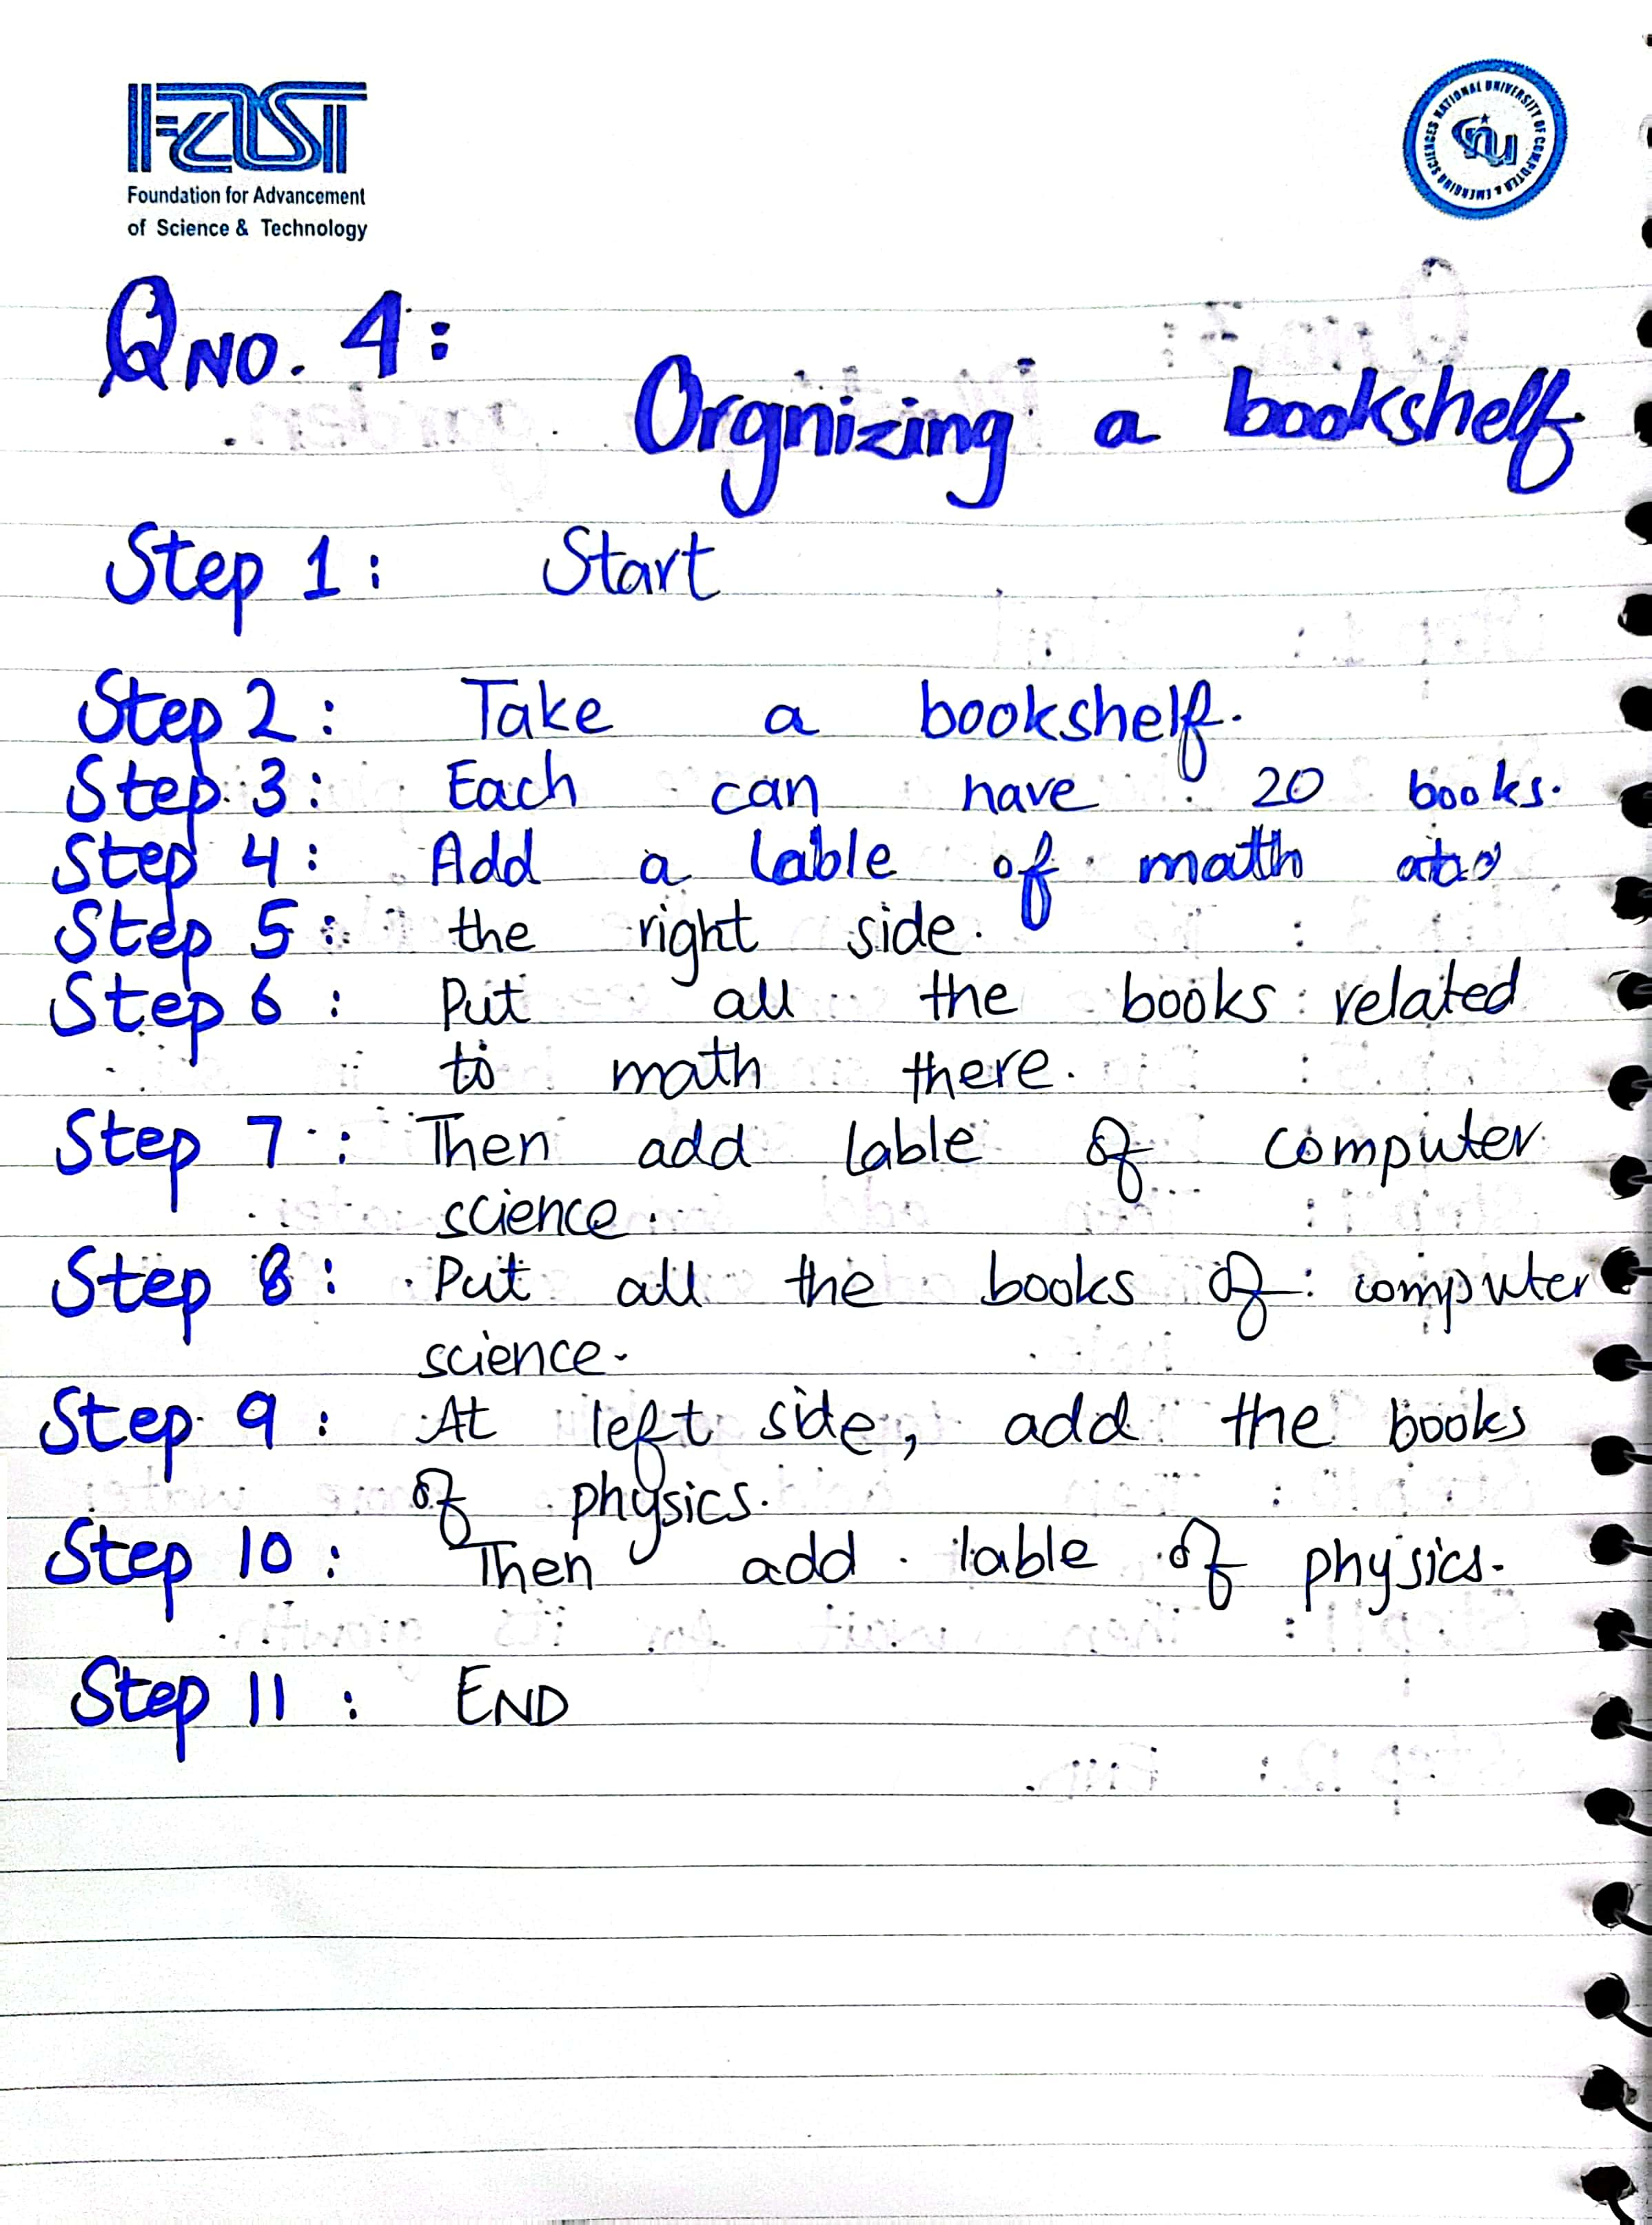 FAST
Foundation for Advancement
of Science & Technology
NATIONAL UNIVERSITY OF COMPUTER & EMERGING SCIENCES
nu
QNO. 4:
Orgnizing a bookshelf
Step 1: Start
Step 2: Take a bookshelf.
Step 3: Each can have 20 books.
Step 4: Add a lable of math
Step 5: the right side.
Step 6: Put all the books related
to math there.
Step 7: Then add lable of computer
science.
Step 8: Put all the books of computer
science.
Step 9: At left side, add the books
of physics.
Step 10: Then add lable of physics.
Step 11: END